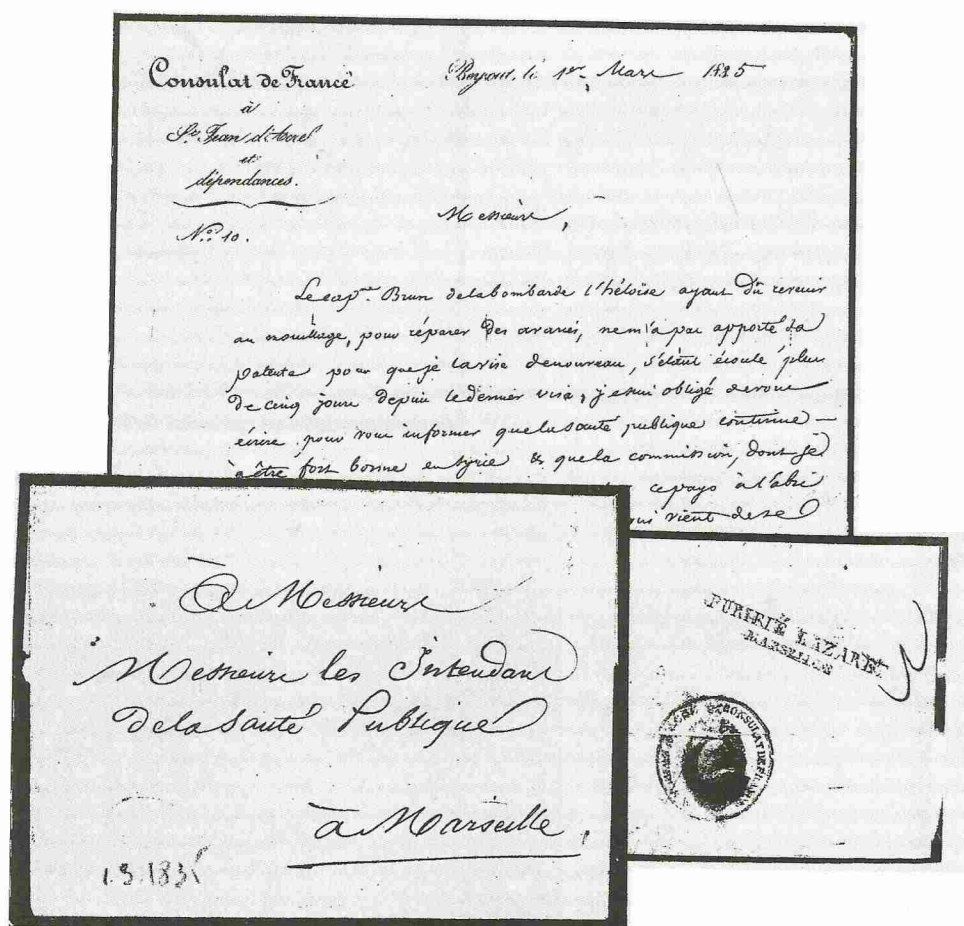 Consulat de France
à
St. Jean d'Acre
et
dépendances.
No. 10.
Beyrout, le 1er Mars 1835
Messieurs,
Le capne Brun de la bombarde l'héloïse ayant dû revenir
au mouillage, pour réparer des avaries, ne m'a pas apporté sa
patente pour que je la vise de nouveau, s'étant écoulé plus
de cinq jours depuis le dernier visa, je suis obligé de vous
écrire, pour vous informer que la santé publique continue
à être fort bonne en Syrie & que la commission, dont je
ce pays à l'abri
qui vient de se
à Messieurs
Messieurs les Intendans
de la Santé Publique
à Marseille.
1.3.183
PURIFIÉ LAZARET
MARSEILLE
CONSULAT DE FRANCE